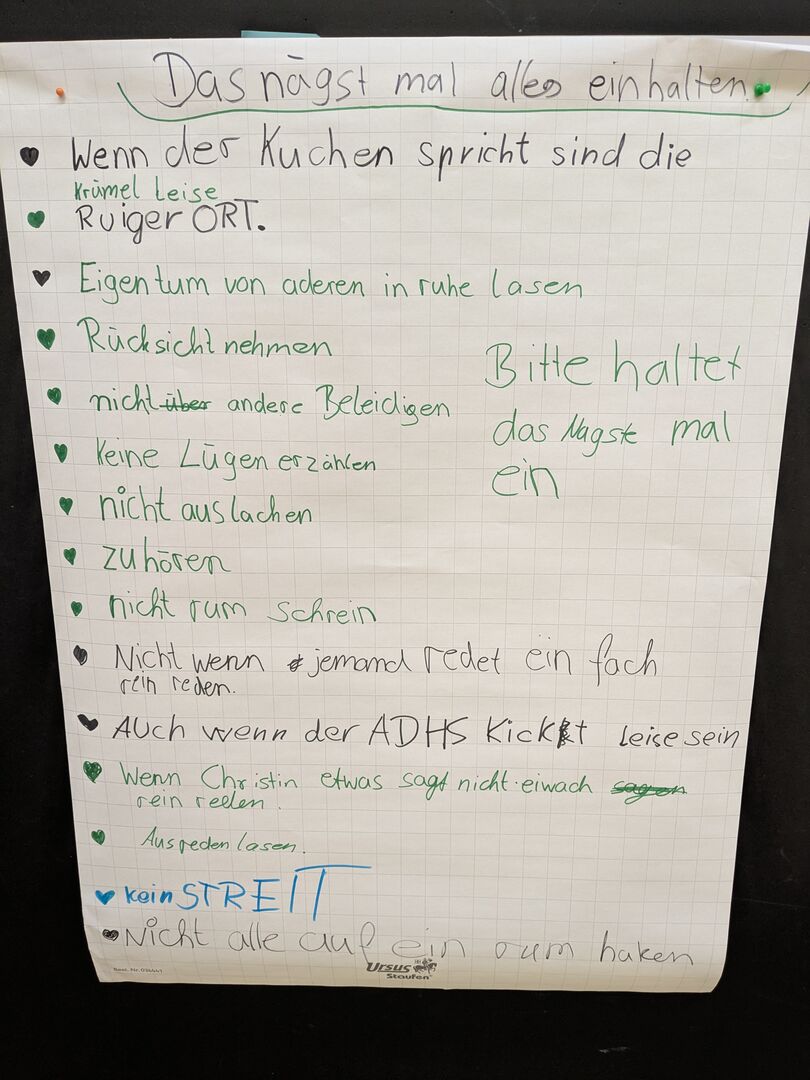 Das nägst mal alles einhalten.
Wenn der Kuchen spricht sind die
Krümel Leise
Ruiger ORT.
Eigentum von aderen in ruhe lasen
Rücksicht nehmen
nicht über andere Beleidigen
keine Lügen erzählen
nicht auslachen
zuhören
nicht rum schrein
Bitte haltet
das Nägste mal
ein
Nicht wenn jemand redet ein fach
rein reden.
AUch wenn der ADHS Kickt Leise sein
Wenn Christin etwas sagt nicht eiwach sagen
rein reden.
Ausreden lasen.
kein STREIT
Nicht alle auf ein rum haken
Best. Nr. 034441
Ursus
Staufen